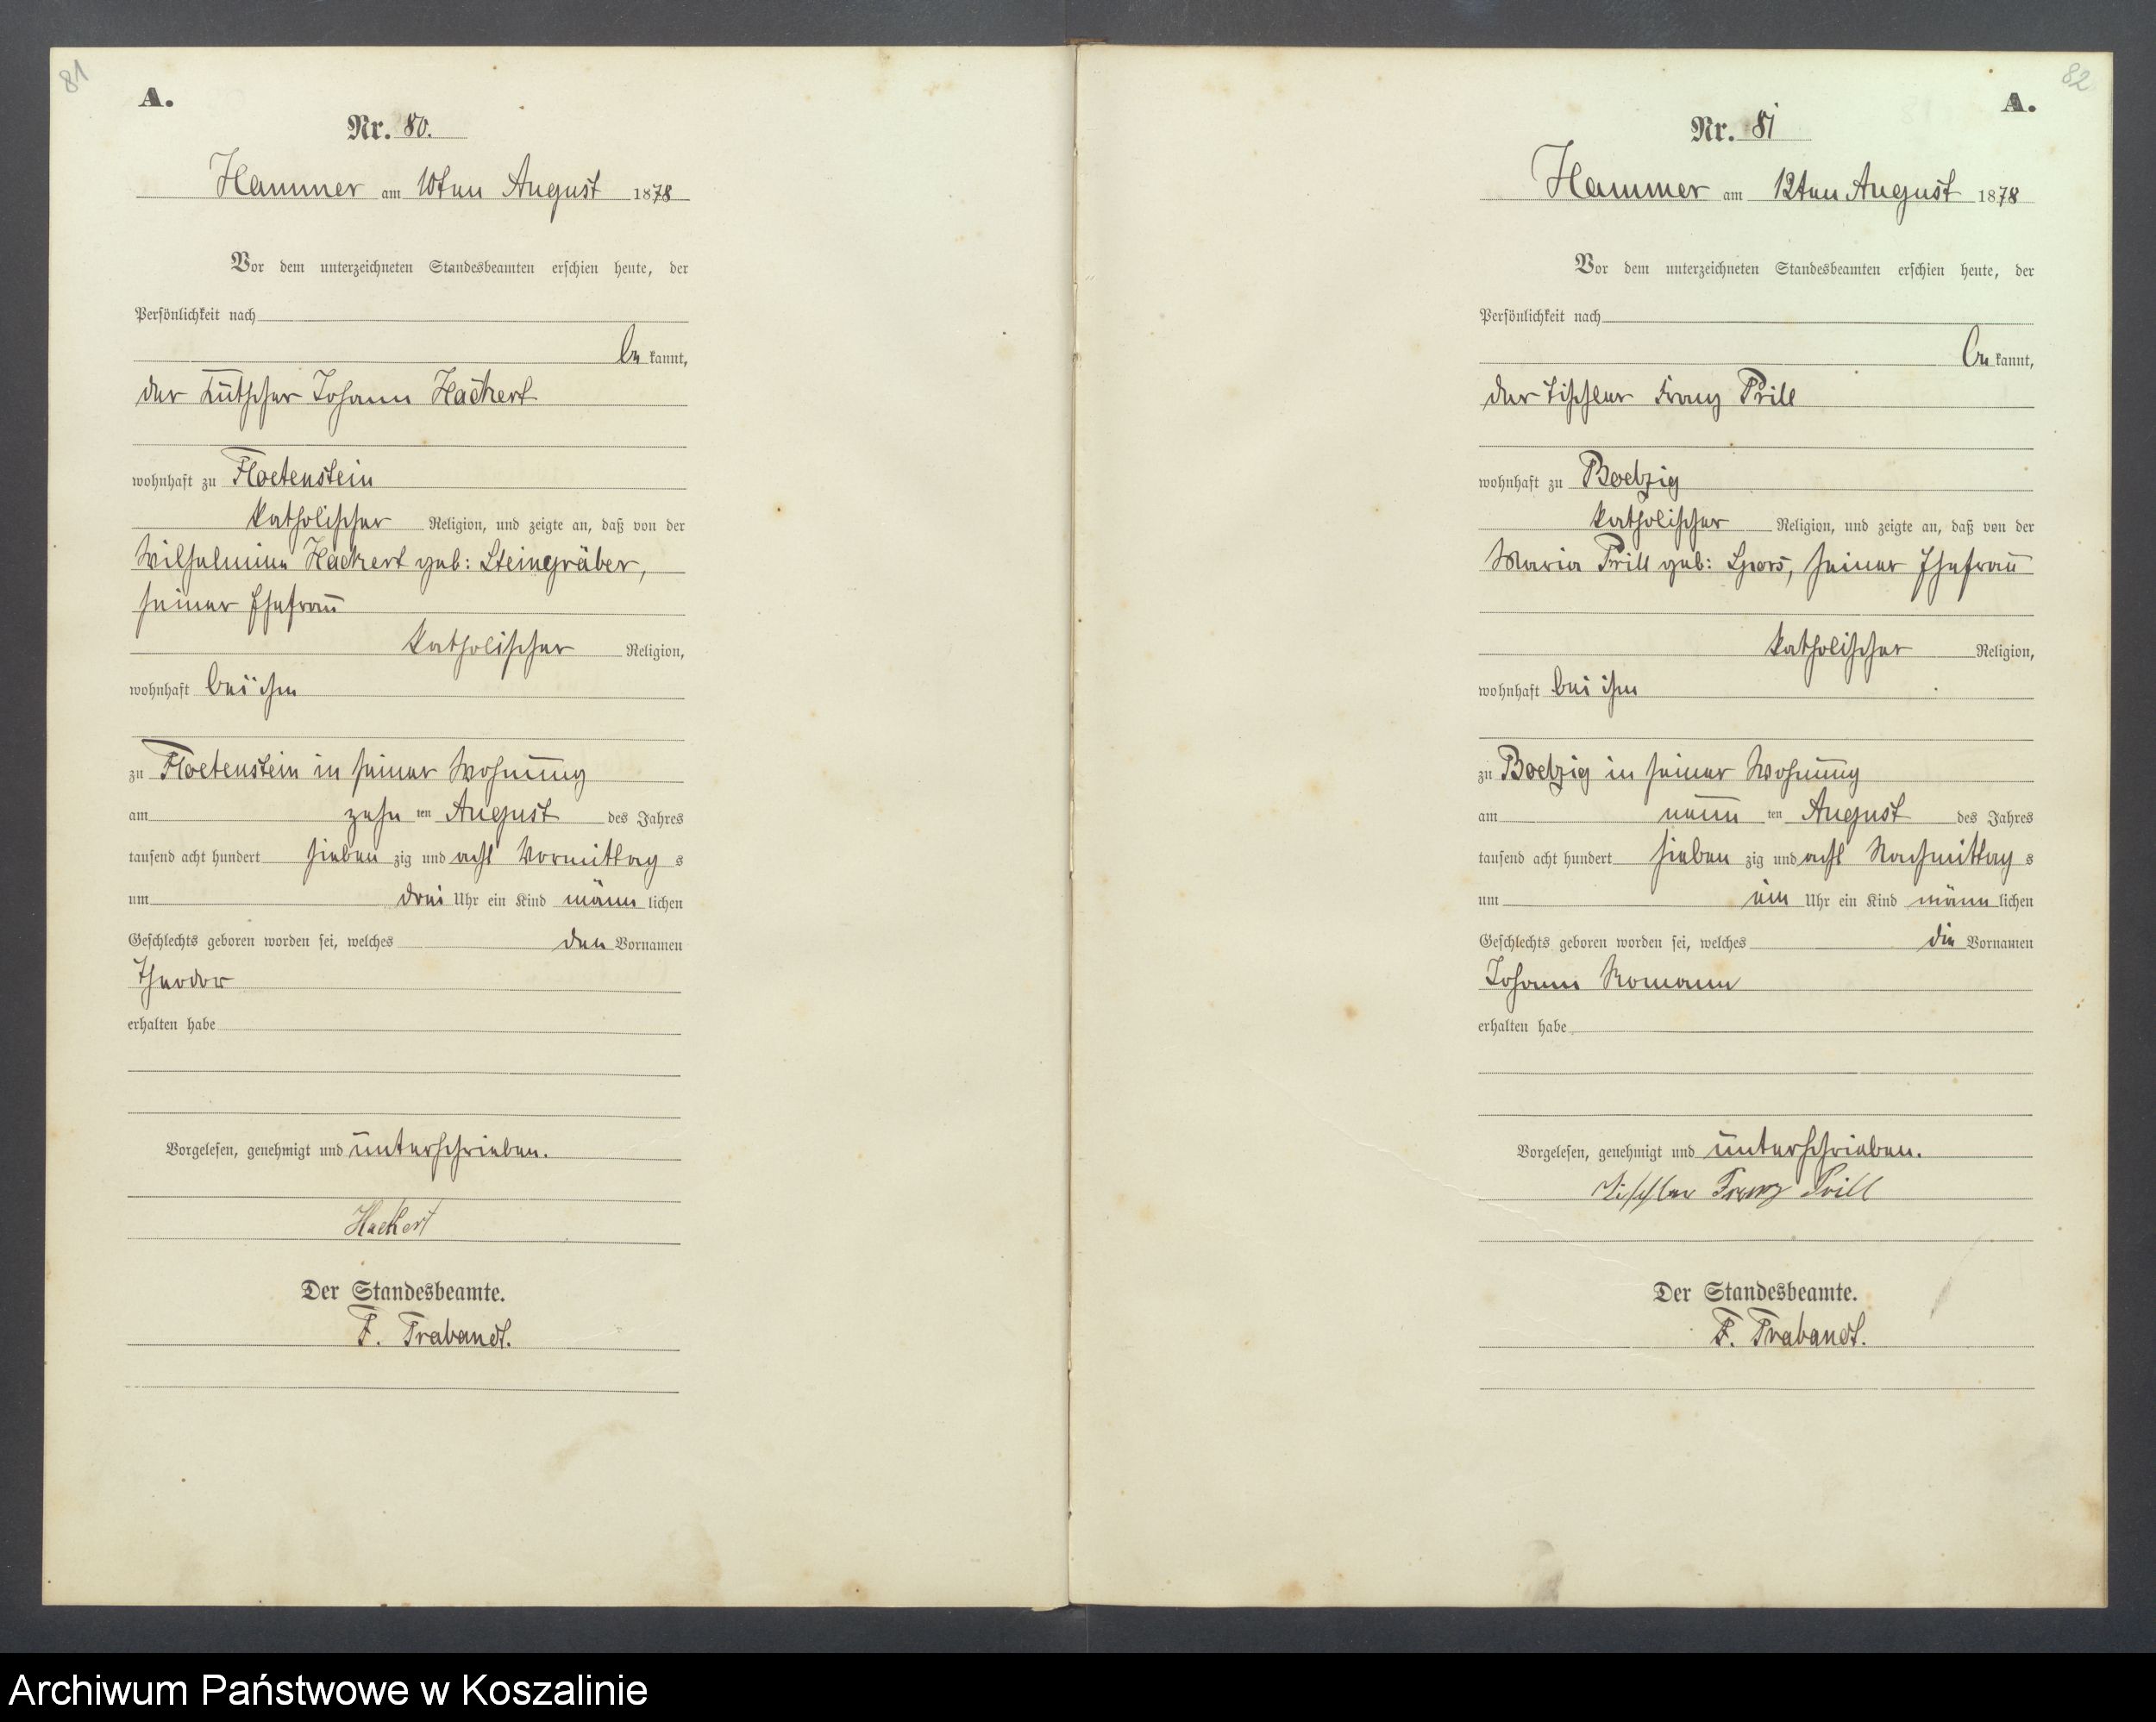 81
A.
Nr. 80.
Hammer am 10ten August 1878
Vor dem unterzeichneten Standesbeamten erschien heute, der
Persönlichkeit nach
be kannt,
der Kutscher Johann Hackert
wohnhaft zu Floetenstein
katholischer Religion, und zeigte an, daß von der
Wilhelmine Hackert geb: Steingräber,
seiner Ehefrau
katholischer Religion,
wohnhaft bei ihm
zu Floetenstein in seiner Wohnung
am zehn ten August des Jahres
tausend acht hundert sieben zig und acht Vormittag s
um drei Uhr ein Kind männ lichen
Geschlechts geboren worden sei, welches den Vornamen
Theodor
erhalten habe
Vorgelesen, genehmigt und unterschrieben.
Hackert
Der Standesbeamte.
F. Trabandt.
82
A.
Nr. 81
Hammer am 12ten August 1878
Vor dem unterzeichneten Standesbeamten erschien heute, der
Persönlichkeit nach
be kannt,
der Tischler Franz Prill
wohnhaft zu Boelzig
katholischer Religion, und zeigte an, daß von der
Maria Prill geb: Spors, seiner Ehefrau
katholischer Religion,
wohnhaft bei ihm
zu Boelzig in seiner Wohnung
am neun ten August des Jahres
tausend acht hundert sieben zig und acht Nachmittag s
um ein Uhr ein Kind männ lichen
Geschlechts geboren worden sei, welches die Vornamen
Johann Romann
erhalten habe
Vorgelesen, genehmigt und unterschrieben.
Tischler Franz Prill
Der Standesbeamte.
F. Trabandt.
Archiwum Państwowe w Koszalinie